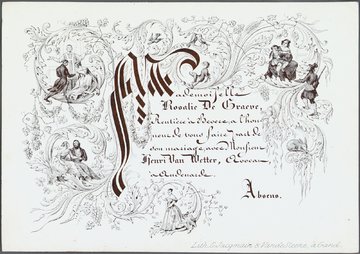 Mademoiselle
Rosalie De Graeve,
Rentière à Bevere, a l'hon
neur de vous faire part de
son mariage, avec Monsieur
Henri Van Wetter, Avocat
à Audenarde.
Absens.
Lith. à Gand.